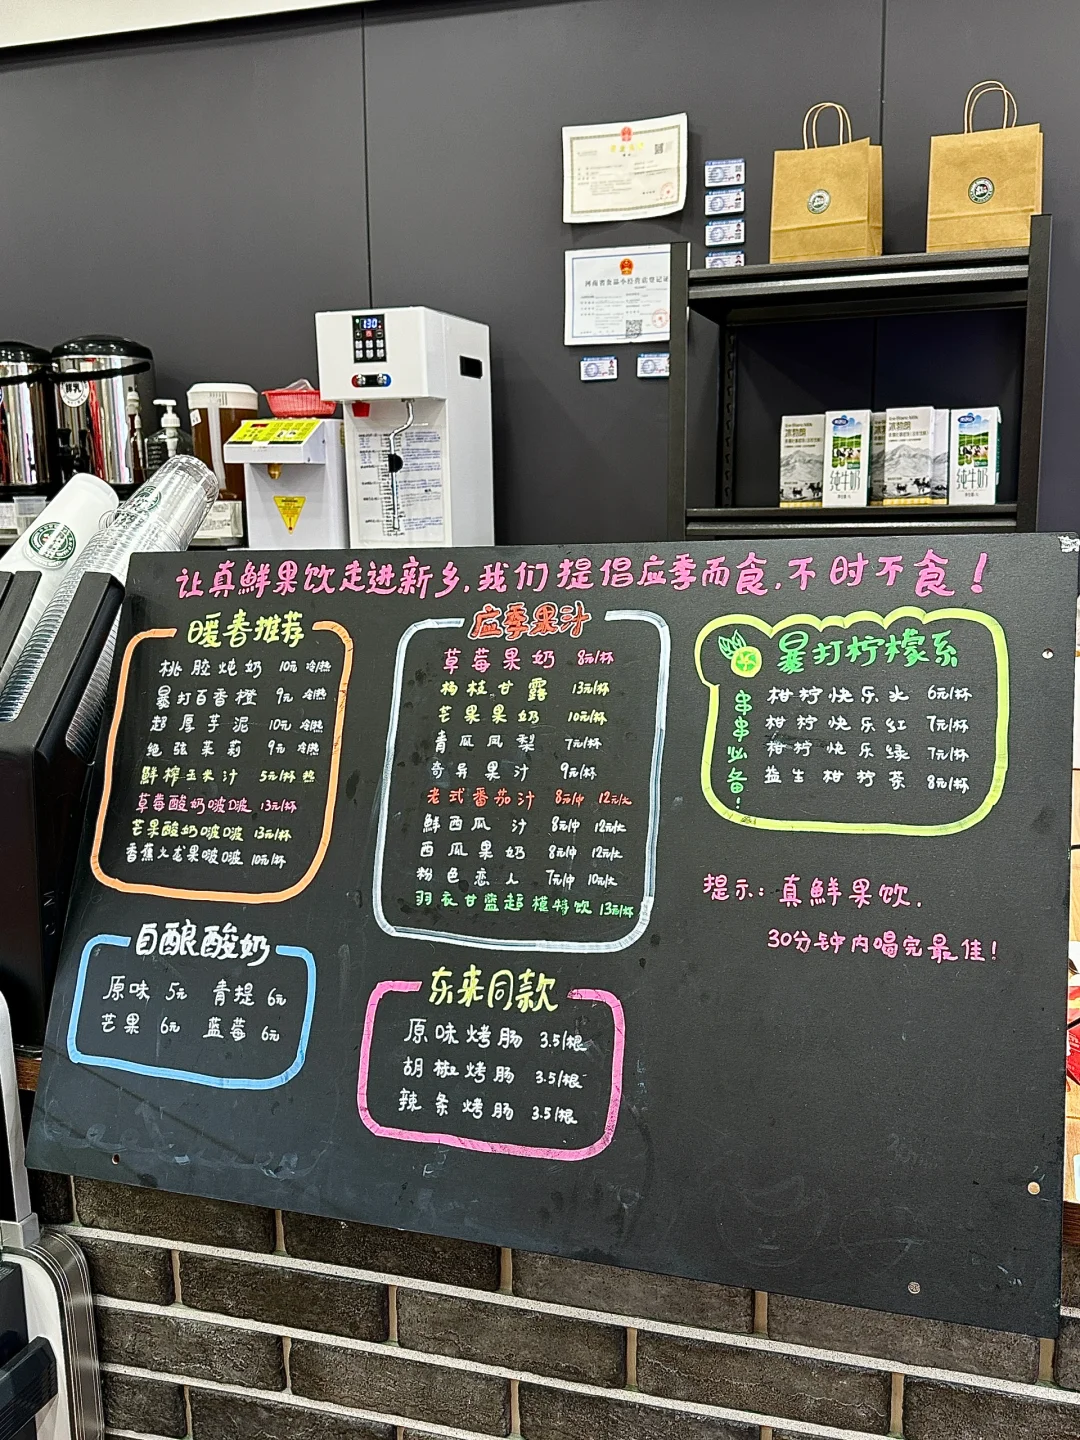 河南省食品小经营店登记证
130
鲜乳
纯牛奶
纯牛奶
让真鲜果饮走进新乡,我们提倡应季而食,不时不食!
暖春推荐
桃胶炖奶 10元 冷/热
暴打百香橙 9元 冷热
超厚芋泥 10元 冷热
绝弦茉莉 9元 冷热
鲜榨玉米汁 5元/杯 热
草莓酸奶啵啵 13元/杯
芒果酸奶啵啵 13元/杯
香蕉火龙果啵啵 10元/杯
应季果汁
草莓果奶 8元/杯
杨枝甘露 13元/杯
芒果果奶 10元/杯
青瓜凤梨 7元/杯
奇异果汁 9元/杯
老式番茄汁 8元/中 12元/大
鲜西瓜汁 8元/中 12元/大
西瓜果奶 8元/中 12元/大
粉色恋人 7元/中 10元/大
羽衣甘蓝超模特饮 13元/杯
暴打柠檬系
串串必备!
柑柠快乐水 6元/杯
柑柠快乐红 7元/杯
柑柠快乐绿 7元/杯
益生柑柠茶 8元/杯
提示:真鲜果饮,
30分钟内喝完最佳!
自酿酸奶
原味 5元 青提 6元
芒果 6元 蓝莓 6元
东来同款
原味烤肠 3.5/根
胡椒烤肠 3.5/根
辣条烤肠 3.5/根